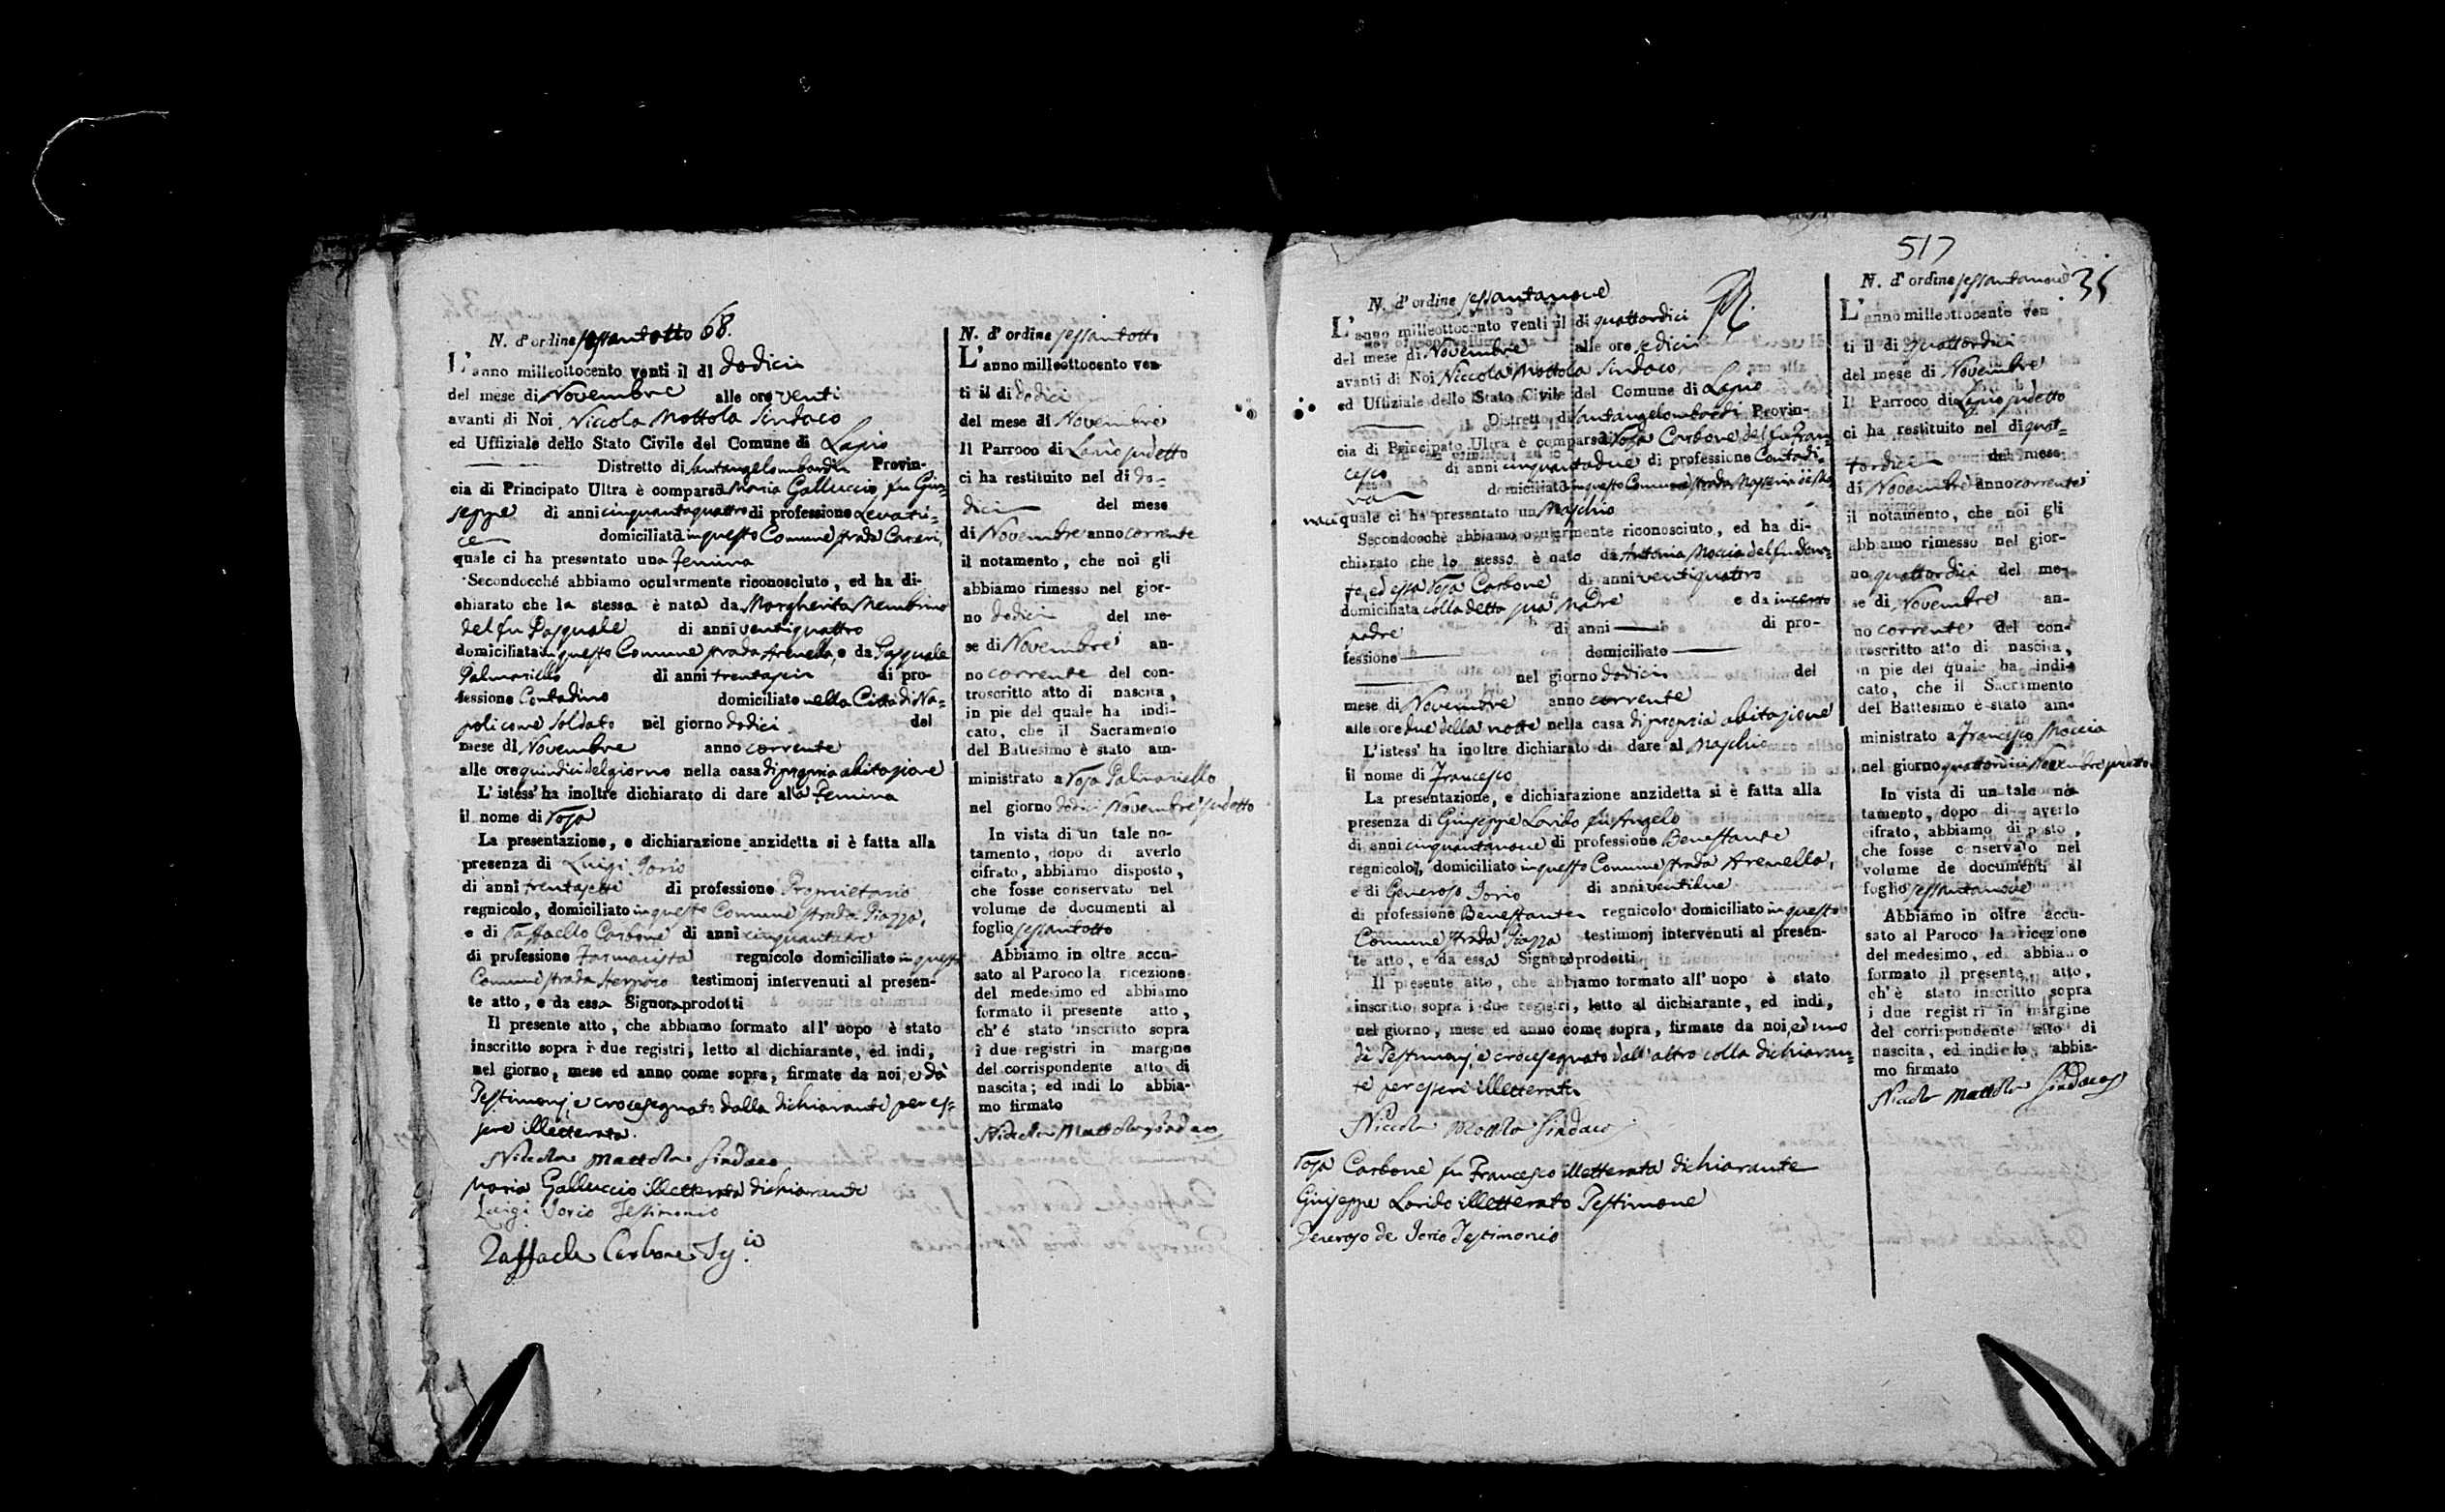 N. d'ordine sessantotto 68.
L'anno milleottocento venti il di dodici
del mese di Novembre alle ore venti
avanti di Noi Niccola Mottola Sindaco
ed Uffiziale dello Stato Civile del Comune di Lapio
Distretto di Santangelombardi Provin-
cia di Principato Ultra è comparsa Maria Galluccio fu Giu=
seppe di anni cinquantaquattro di professione Levatri=
ce domiciliata in questo Comune strada Carceri,
quale ci ha presentato una Femina
Secondocché abbiamo ocularmente riconosciuto, ed ha di-
chiarato che la stessa è nata da Margherita Membrino
del fu Pasquale di anni ventiquattro
domiciliata in questo Comune strada Arenella, e da Pasquale
Palmariello di anni trentasein di pro-
fessione Contadino domiciliato nella Città di Na=
poli come Soldato nel giorno dodici del
mese di Novembre anno corrente
alle ore quindici del giorno nella casa di propria abitazione
L'istess' ha inoltre dichiarato di dare ala Femina
il nome di Rosa
La presentazione, e dichiarazione anzidetta si è fatta alla
presenza di Luigi Iorio
di anni trentasette di professione Proprietario
regnicolo, domiciliato in questo Comune strada Piazza,
e di Raffaello Carbone di anni cinquantatre
di professione Farmacista regnicolo domiciliato in questo
Comune strada testimonj intervenuti al presen-
te atto, e da essa Signora prodotti
Il presente atto, che abbiamo formato all' uopo è stato
inscritto sopra i due registri, letto al dichiarante, ed indi,
nel giorno, mese ed anno come sopra, firmate da noi, e dà
Testimonj, e crocesegnato dalla dichiarante per es=
sere illetterata.
Niccola Mottola Sindaco
Maria Galluccio illetterata dichiarante
Luigi Iorio Testimonio
Raffaele Carbone
N. d'ordine sessantotto
L'anno milleottocento ven-
ti il di dodici
del mese di Novembre
Il Parroco di Lapio sudetto
ci ha restituito nel di do=
dici del mese
di Novembre anno corrente
il notamento, che noi gli
abbiamo rimesso nel gior-
no dodici del me-
se di Novembre an-
no corrente del con-
troscritto atto di nascita,
in pie del quale ha indi-
cato, che il Sacramento
del Battesimo è stato am-
ministrato a Rosa Palmariello
nel giorno dodici Novembre sudetto
In vista di un tale no-
tamento, dopo di averlo
cifrato, abbiamo disposto,
che fosse conservato nel
volume de documenti al
foglio sessantotto
Abbiamo in oltre accu-
sato al Paroco la ricezione
del medesimo ed abbiamo
formato il presente atto,
ch' é stato inscritto sopra
i due registri in margine
del corrispondente atto di
nascita; ed indi lo abbia-
mo firmato
Niccola Mottola Sindaco
517
35
N. d'ordine sessantanove
L'anno milleottocento venti il di quattordici
del mese di Novembre alle ore sedici
avanti di Noi Niccola Mottola Sindaco
ed Uffiziale dello Stato Civile del Comune di Lapio
Distretto di Santangelombardi Provin-
cia di Principato Ultra è comparsa Rosa Carbone del fu Fran=
cesco di anni cinquantadue di professione Contadi=
na domiciliata in questo Comune strada
quale ci ha presentato un Maschio
Secondocchè abbiamo ocularmente riconosciuto, ed ha di-
chiarato che lo stesso è nato da Antonia Moccia del fu Dona=
to, ed essa Rosa Carbone di anni ventiquattro
domiciliata colla detta sua Madre e da incerto
padre di anni di pro-
fessione domiciliato
nel giorno dodici del
mese di Novembre anno corrente
alle ore due della notte nella casa di propria abitazione
L'istess' ha inoltre dichiarato di dare al Maschio
il nome di Francesco
La presentazione, e dichiarazione anzidetta si è fatta alla
presenza di Giuseppe Lorido fu Angelo
di anni cinquantanove di professione Benestante
regnicolo, domiciliato in questo Comune strada Arenella,
e di Generoso Iorio di anni ventidue
di professione Benestante regnicolo domiciliato in questo
Comune strada Piazza testimonj intervenuti al presen-
te atto, e da essa Signora prodotti
Il presente atto, che abbiamo formato all' uopo è stato
inscritto sopra i due registri, letto al dichiarante, ed indi,
nel giorno, mese ed anno come sopra, firmate da noi, ed uno
dè Testimonj, e crocesegnato dall'altro colla dichiaran=
te per essere illetterati
Niccola Mottola Sindaco
Rosa Carbone fu Francesco illetterata dichiarante
Giuseppe Lorido illetterato Testimone
Generoso de Iorio Testimonio
N. d'ordine sessantanove
L'anno milleottocento ven
ti il di quattordici
del mese di Novembre
Il Parroco di Lapio sudetto
ci ha restituito nel di quat=
tordici del mese
di Novembre anno corrente
il notamento, che noi gli
abbiamo rimesso nel gior-
no quattordici del me-
se di Novembre an-
no corrente del con-
troscritto atto di nascita,
in pie del quale ha indi-
cato, che il Sacramento
del Battesimo è stato am-
ministrato a Francesco Moccia
nel giorno quattordici Novembre sudetto
In vista di un tale no-
tamento, dopo di averlo
cifrato, abbiamo disposto,
che fosse conservato nel
volume de documenti al
foglio sessantanove
Abbiamo in oltre accu-
sato al Paroco la ricezione
del medesimo, ed abbiamo
formato il presente atto,
ch' è stato inscritto sopra
i due registri in margine
del corrispondente atto di
nascita, ed indi lo abbia-
mo firmato
Niccola Mottola Sindaco